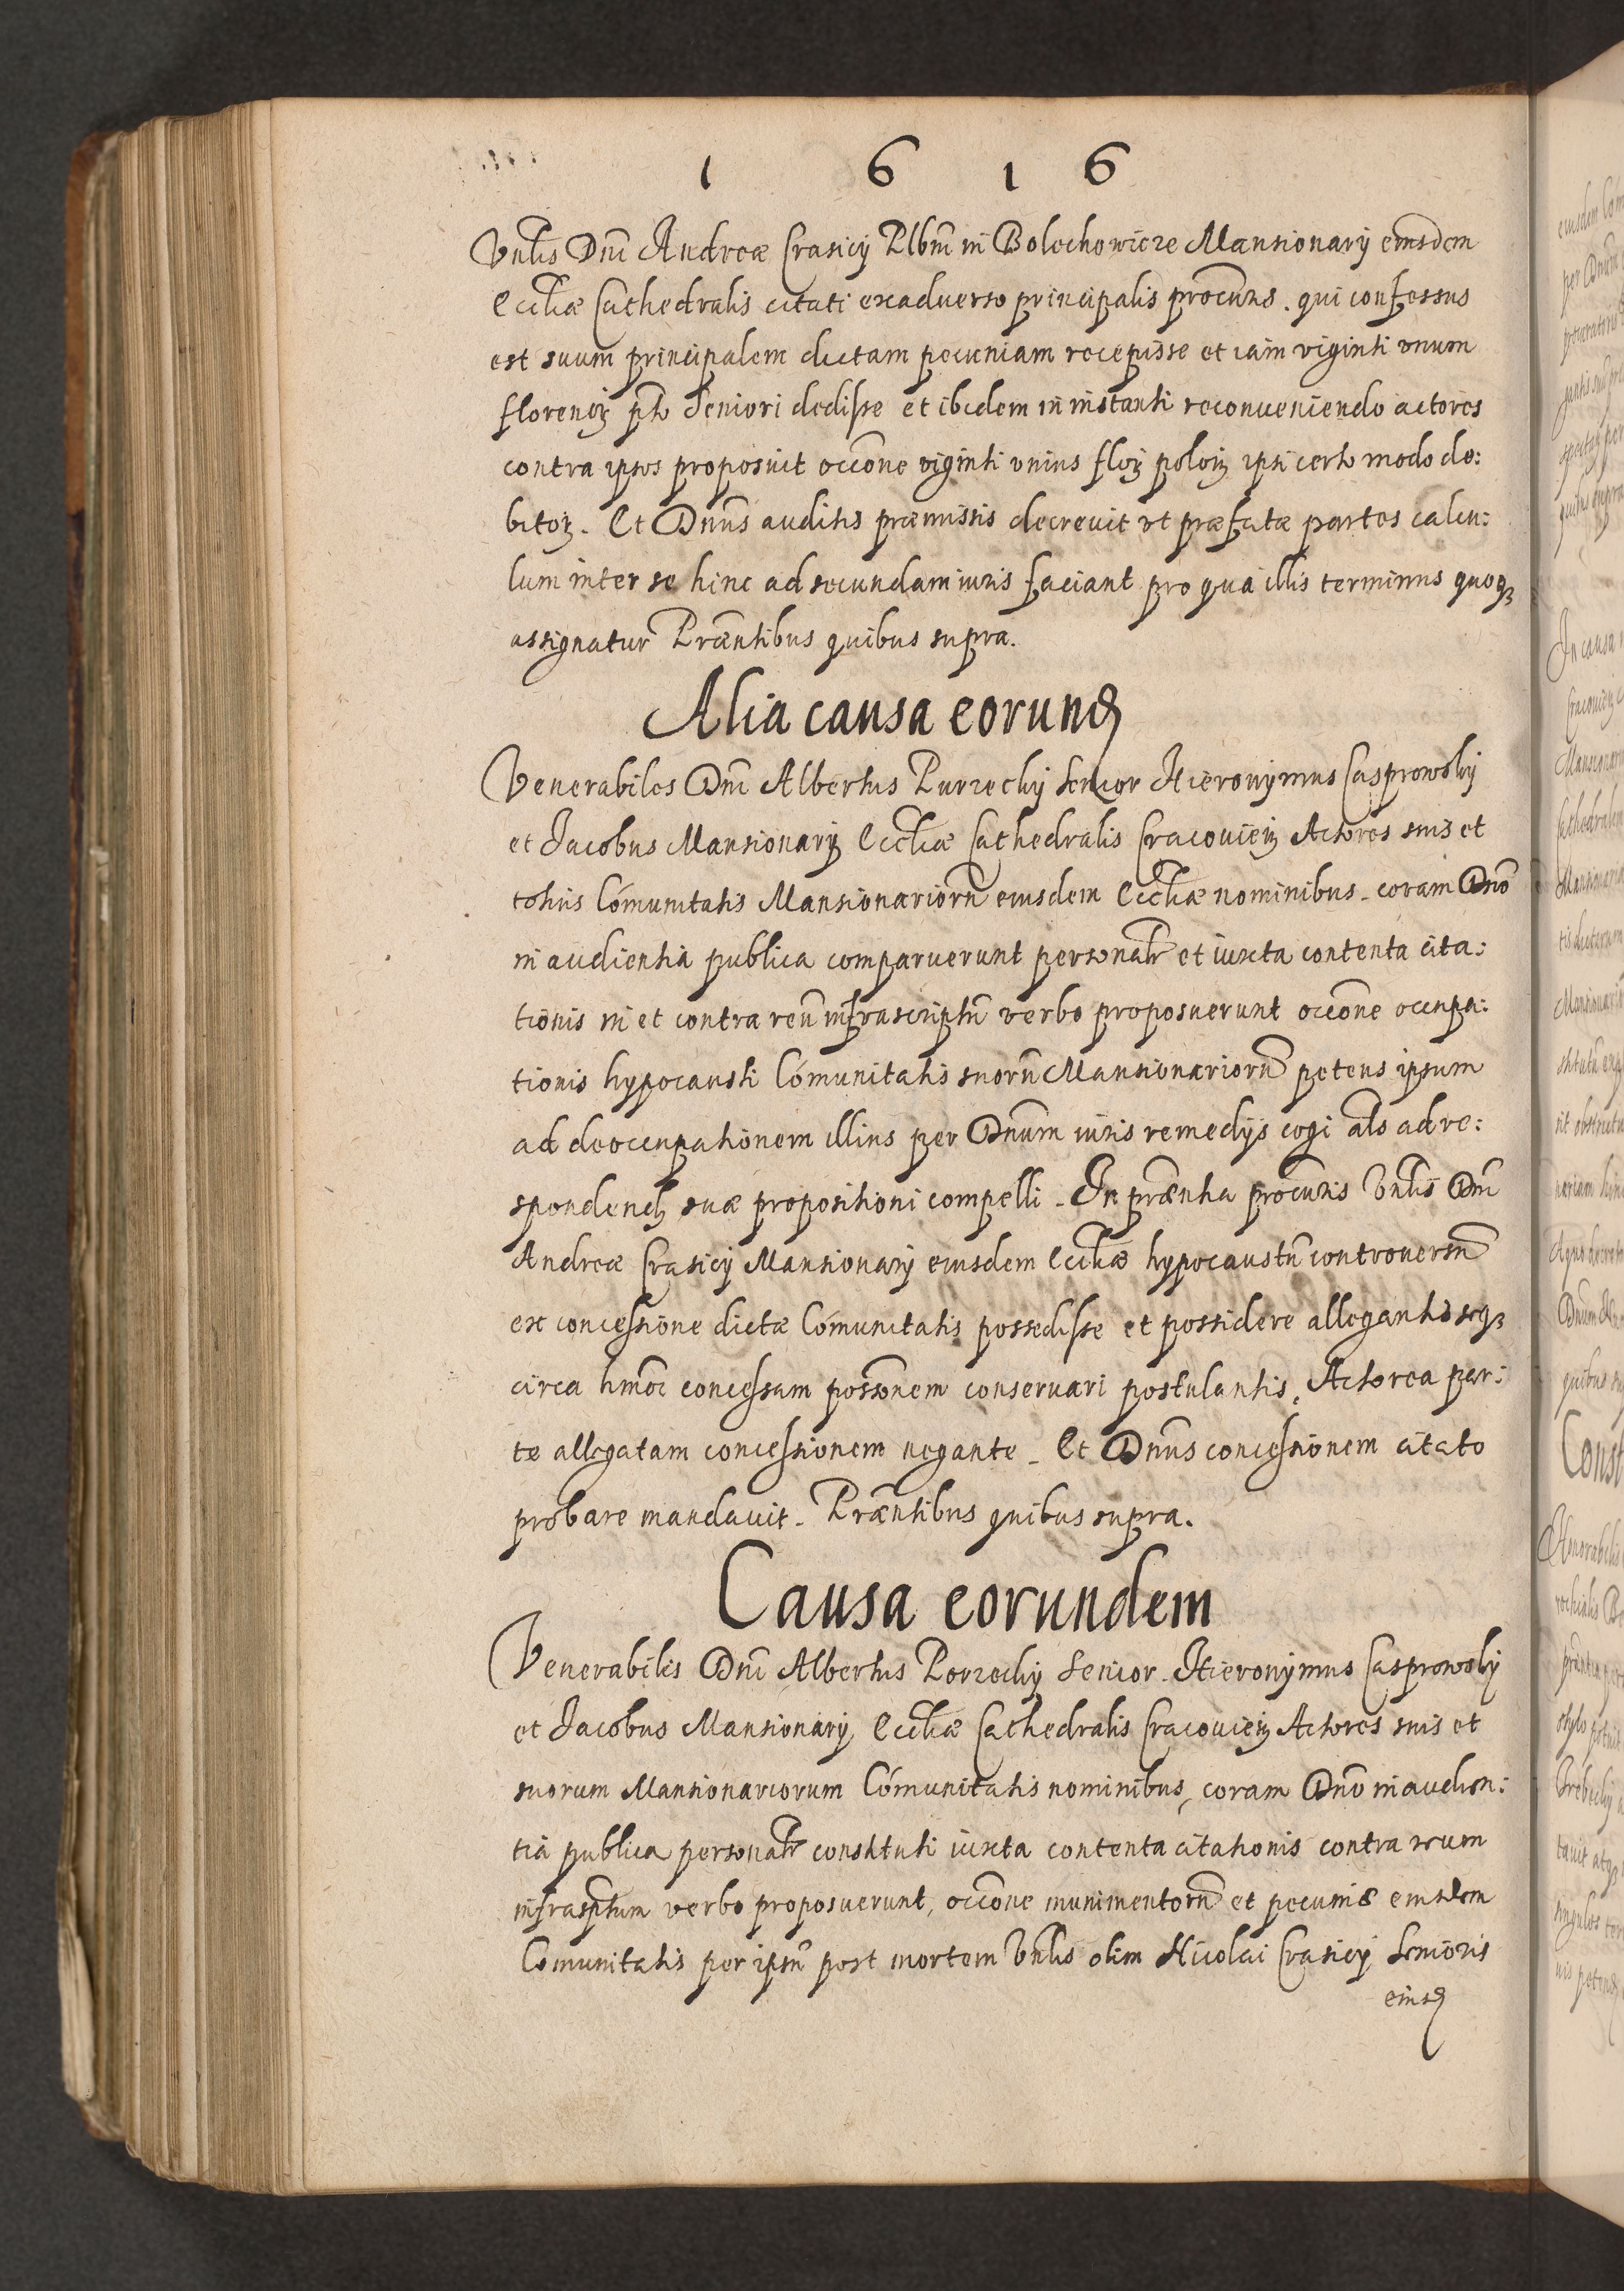 1 6 1 6
Vnlis Dni Andreæ Crasicÿ Plbni in Bolechowicze Mansionarÿ eiusdem
Eccliæ Cathedralis citati exaduerso principalis procuris. qui confessus
est suum principalem dictam pecuniam recepisse et iam viginti vnum
florenoꝝ pto Seniori dedisse et ibidem in instanti reconueniendo actores
contra ipsos proposuit occone viginti vnius floꝝ poloꝝ ipsi certo modo de:
bitoꝝ. Et Dnus auditis præmissis decreuit vt præfatæ partes calcu:
lum inter se hinc ad secundam iuris faciant pro qua illis terminus quoqꝫ
assignatur Præntibus quibus supra.
Alia causa eorund
Venerabiles Dni Albertus Purzeckÿ Senior Hieronÿmus Casprowskÿ
et Jacobus Mansionarÿ Eccliæ Cathedralis Cracouien Actores suis et
totius Comunitatis Mansionariorū eiusdem Eccliæ nominibus. coram Dno
in audientia publica comparuerunt personalr et iuxta contenta cita:
tionis in et contra reū infrascriptū verbo proposuerunt occone occupa:
tionis hypocausti Comunitatis suorū Mansionariorū petens ipsum
ad deoccupationem illius per Dnum iuris remedÿs cogi als ad re:
spondend suæ propositioni compelli. In præntia procuris Vnlis Dni
Andreæ Crasicÿ Mansionarÿ eiusdem Eccliæ hypocaustū controuersū
ex concessione dictæ Comunitatis possedisse et possidere allegantis seqꝫ
circa hmoi concessam possonem conseruari postulantis, Actorea par:
te allegatam concessionem negante. Et Dnus concessionem citato
probare mandauit. Præntibus quibus supra.
Causa eorundem
Venerabilis Dni Albertus Porzeckÿ Senior. Hieronÿmus Casprowskÿ
et Jacobus Mansionarÿ Eccliæ Cathedralis Cracouien Actores suis et
suorum Mansionariorum Comunitatis nominibus, coram Dno in audien:
tia publica personalr constituti iuxta contenta citationis contra reum
infrasptum verbo proposuerunt, occone munimentorū et pecuniæ eiusdem
Comunitatis per ipsū post mortem Vnlis olim Nicolai Crasicÿ Senioris
eiusd